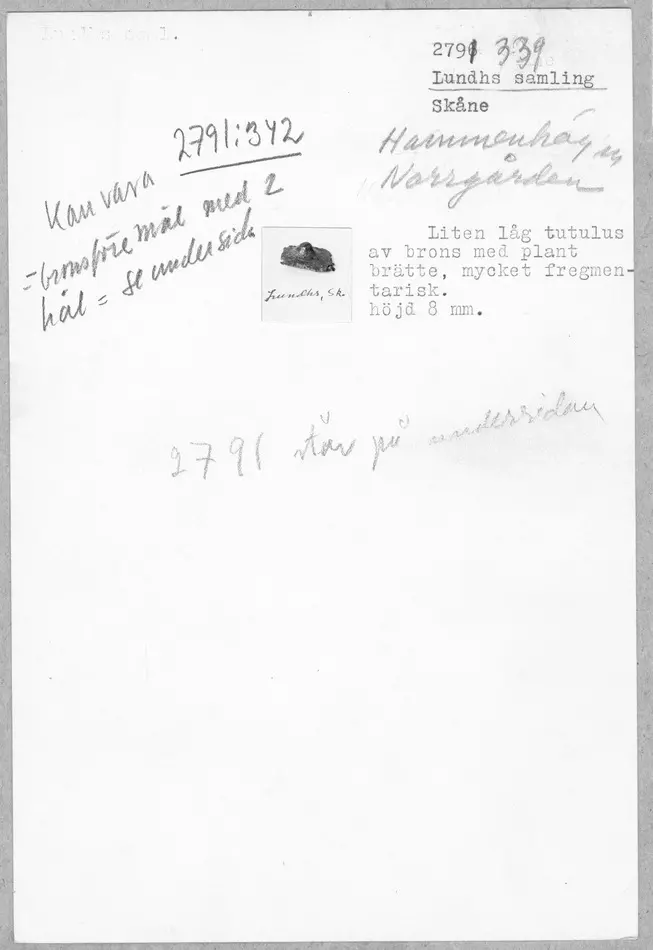 2791 339
Lundhs samling
Skåne
Hammenhög sn
Norrgården
Kan vara 2791:342
=bronsföremål med 2
hål = se undersida
Liten låg tutulus
av brons med plant
brätte, mycket fregmen-
tarisk.
höjd 8 mm.
Lundhs, Sk.
2791 står på undersidan